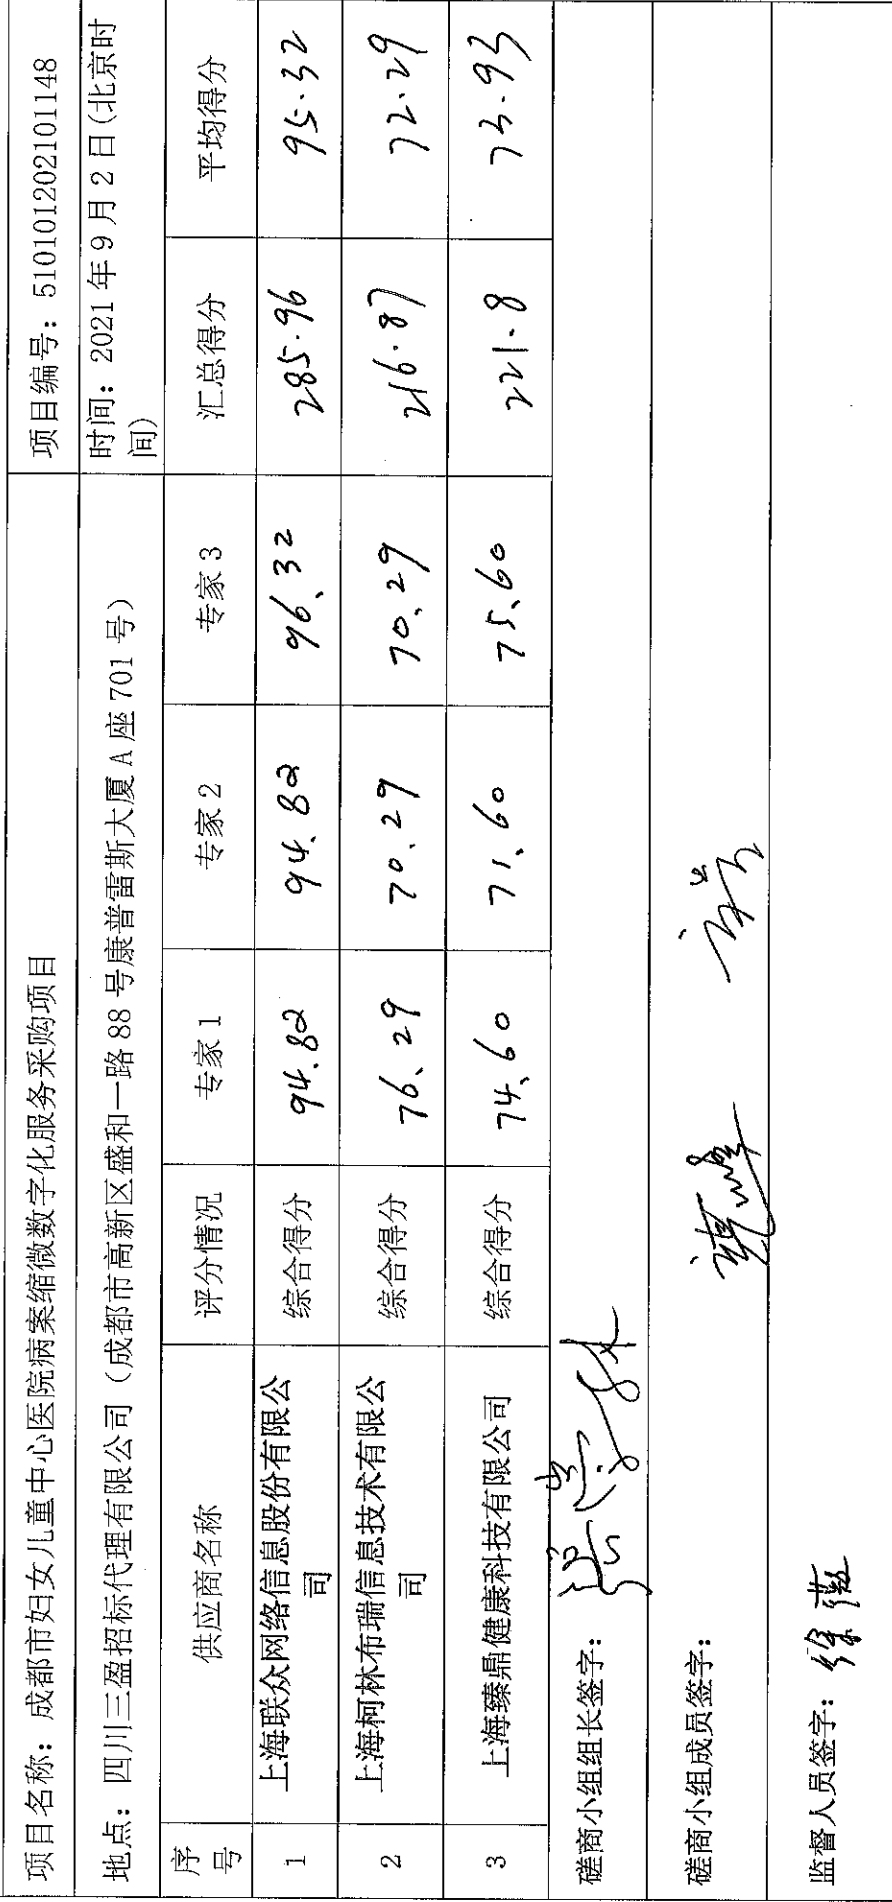 项目名称：成都市妇女儿童中心医院病案缩微数字化服务采购项目 项目编号：510101202101148
地点：四川三盈招标代理有限公司（成都市高新区盛和一路 88 号康普雷斯大厦 A 座 701 号） 时间：2021 年 9 月 2 日(北京时
间)
序号 供应商名称 评分情况 专家 1 专家 2 专家 3 汇总得分 平均得分
1 上海联众网络信息股份有限公司 综合得分 94.82 94.82 96.32 285.96 95.32
2 上海柯林布瑞信息技术有限公司 综合得分 76.29 70.29 70.29 216.87 72.29
3 上海臻鼎健康科技有限公司 综合得分 74.60 71.60 75.60 221.8 73.93
磋商小组组长签字：
磋商小组成员签字：
监督人员签字：徐薇